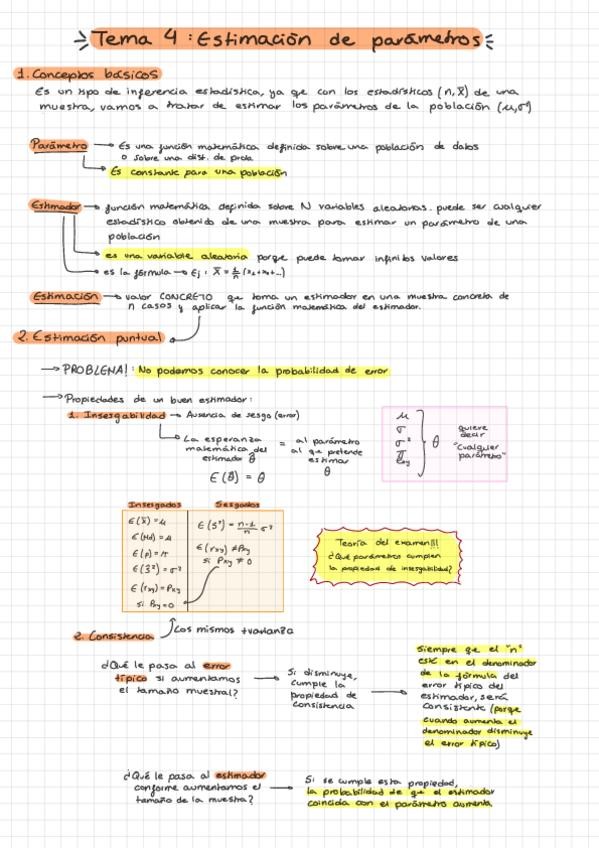 Tema 4: Estimación de parámetros
1. Conceptos básicos
Es un tipo de inferencia estadística, ya que con los estadísticos (n, X̄) de una
muestra, vamos a tratar de estimar los parámetros de la población (μ, σ)
Parámetro → Es una función matemática definida sobre una población de datos
o sobre una dist. de prob.
Es constante para una población
Estimador → función matemática definida sobre N variables aleatorias. puede ser cualquier
estadístico obtenido de una muestra para estimar un parámetro de una
población
es una variable aleatoria porque puede tomar infinitos valores
es la fórmula → Ej: X̄ = 1/n (x₁+x₂+...)
Estimación → valor CONCRETO que toma un estimador en una muestra concreta de
n casos y aplicar la función matemática del estimador.
2. Estimación puntual
→ PROBLEMA!: No podemos conocer la probabilidad de error
→ Propiedades de un buen estimador:
1. Insesgabilidad → Ausencia de sesgo (error)
La esperanza
matemática del
estimador θ̂
=
al parámetro
al que pretende
estimar
θ
E(θ̂) = θ
μ
σ
σ²
θ
quiere
decir
"Cualquier
parámetro"
Insesgados
Sesgados
E(X̄) = μ
E(Md) = μ
E(p) = π
E(Ŝ²) = σ²
E(rxy) = Pxy
si Pxy = 0
E(S²) = n-1/n σ²
E(rxy) ≠ Pxy
si Pxy ≠ 0
Teoría del examen!!!
¿Qué parámetros cumplen
la propiedad de insesgabilidad?
2. Consistencia
Los mismos + varianza
¿Qué le pasa al error
típico si aumentamos
el tamaño muestral?
Si disminuye,
cumple la
propiedad de
consistencia
siempre que el "n"
esté en el denominador
de la fórmula del
error típico del
estimador, será
consistente (porque
cuando aumenta el
denominador disminuye
el error típico)
¿Qué le pasa al estimador
conforme aumentamos el
tamaño de la muestra?
Si se cumple esta propiedad,
la probabilidad de que el estimador
coincida con el parámetro aumenta